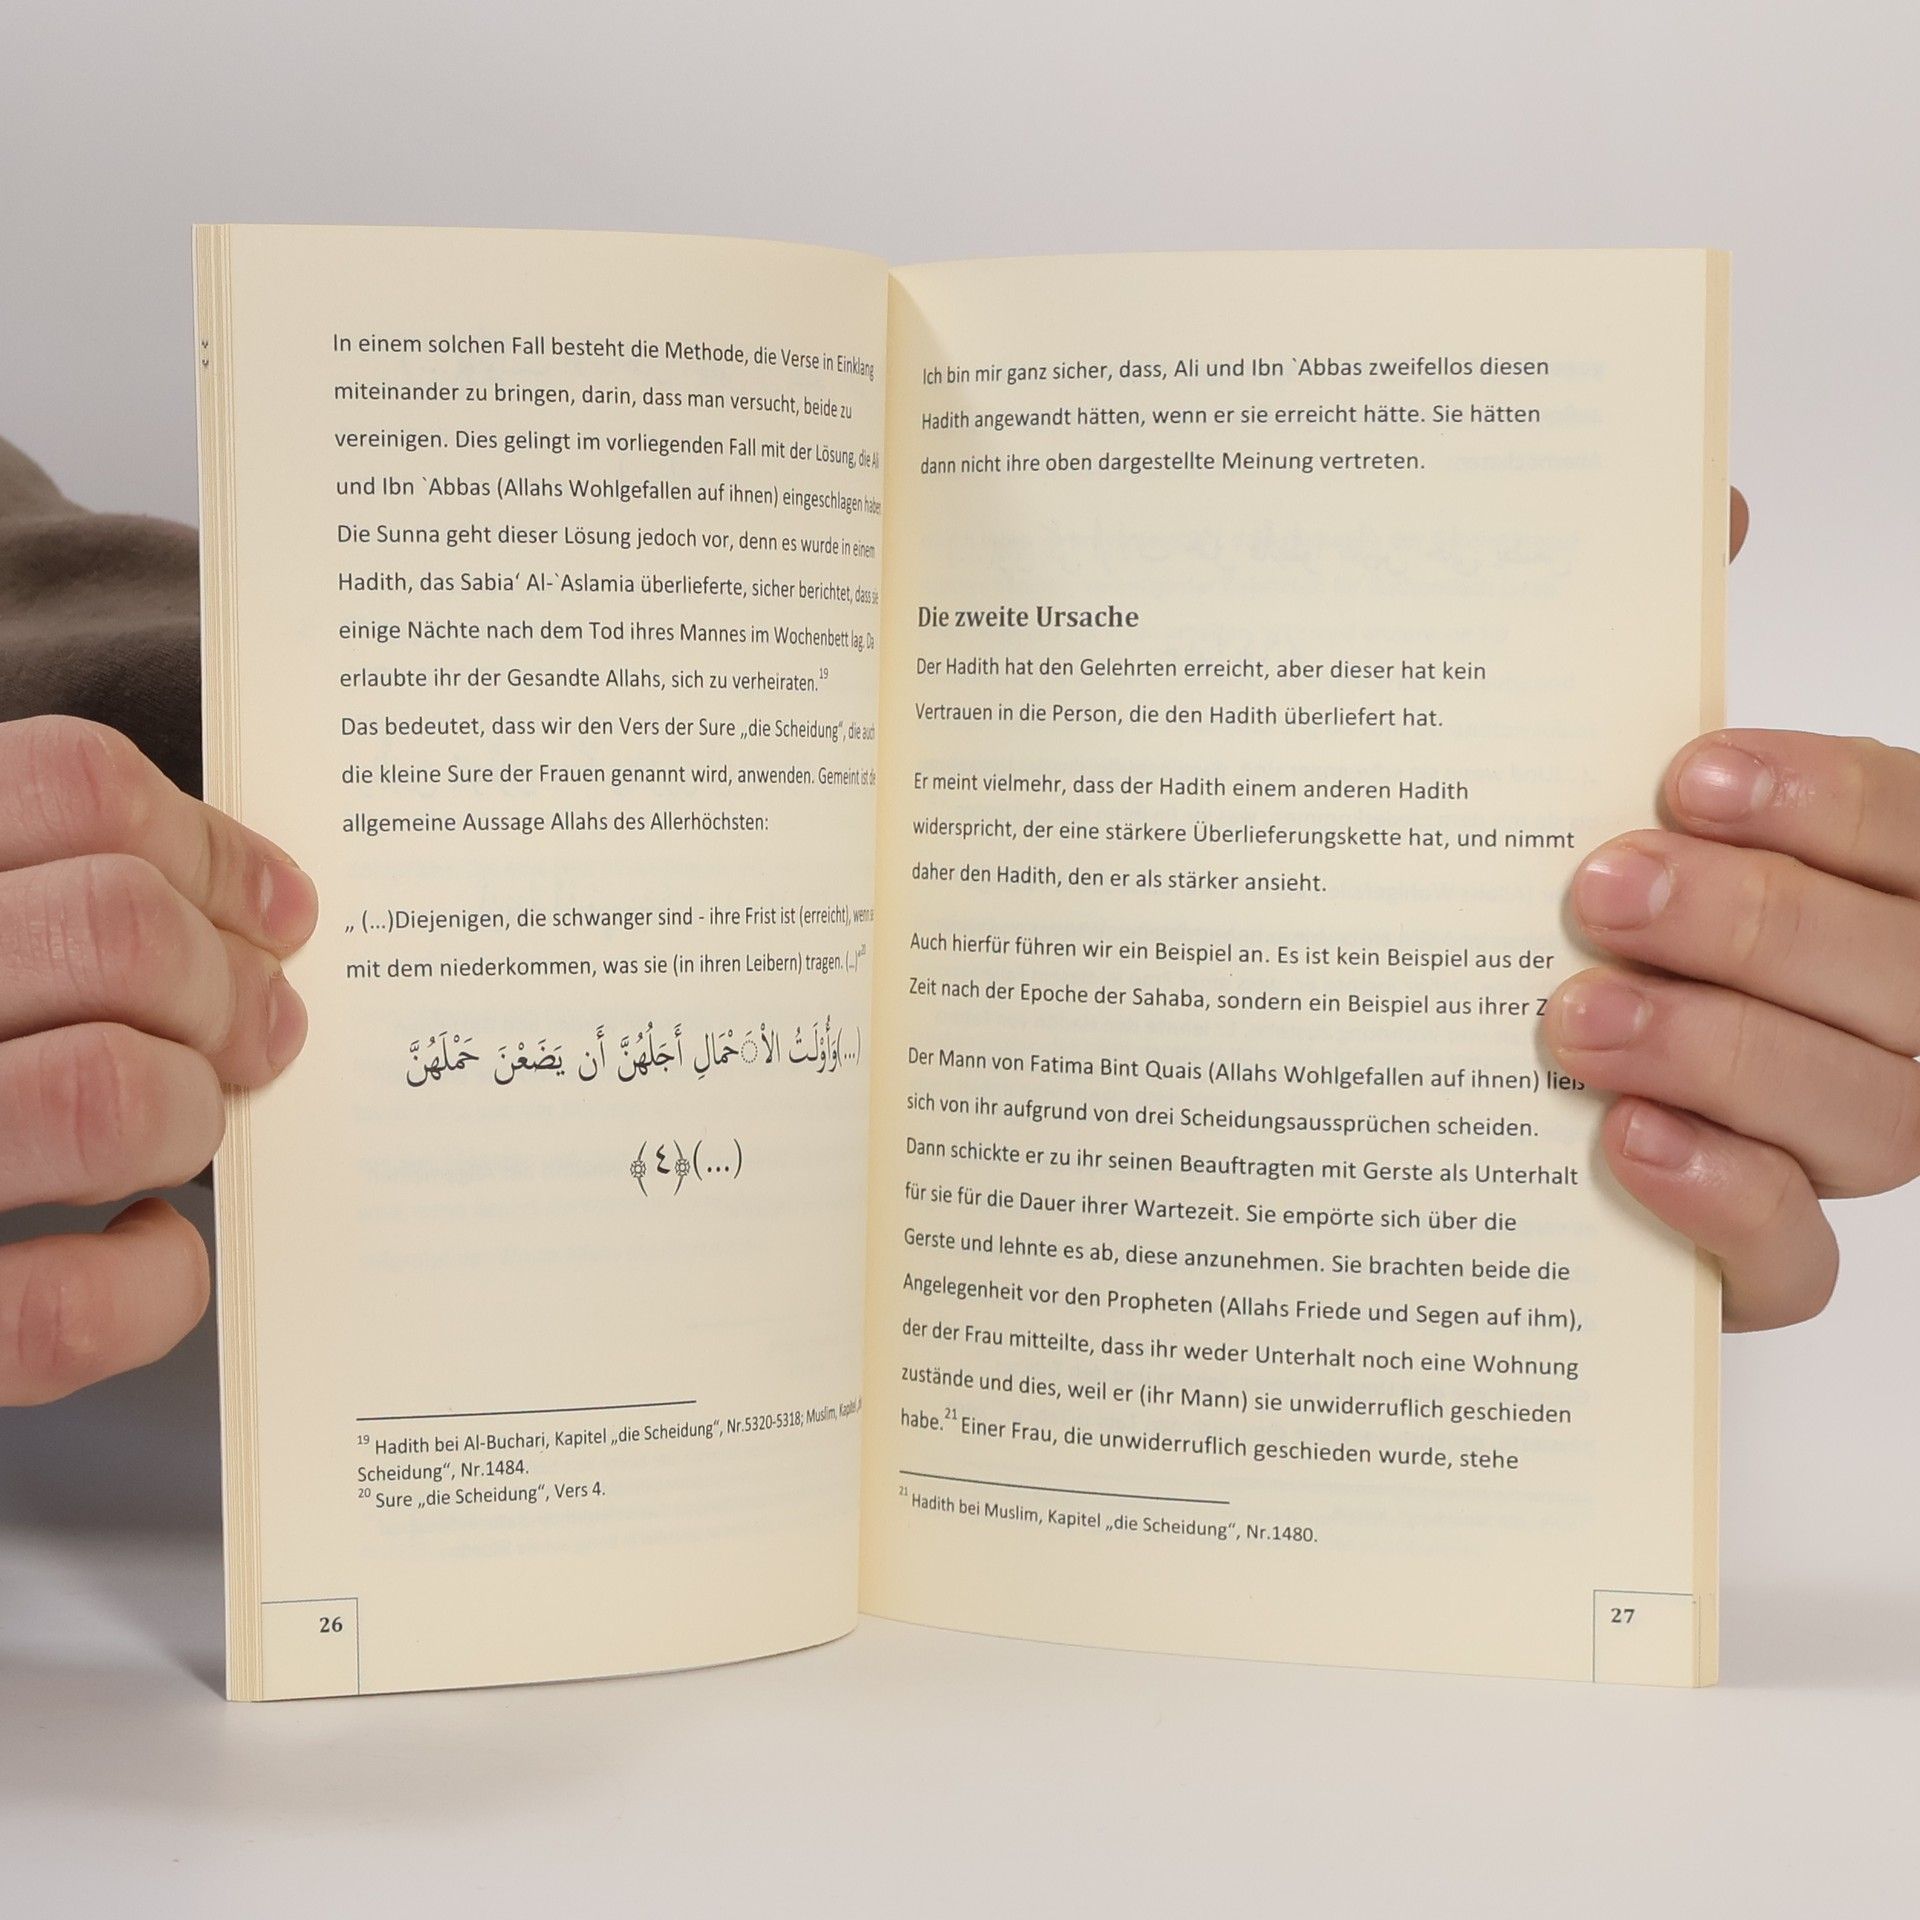 In einem solchen Fall besteht die Methode, die Verse in Einklang
miteinander zu bringen, darin, dass man versucht, beide zu
vereinigen. Dies gelingt im vorliegenden Fall mit der Lösung, die Ali
und Ibn `Abbas (Allahs Wohlgefallen auf ihnen) eingeschlagen haben.
Die Sunna geht dieser Lösung jedoch vor, denn es wurde in einem
Hadith, das Sabia‘ Al-`Aslamia überlieferte, sicher berichtet, dass sie
einige Nächte nach dem Tod ihres Mannes im Wochenbett lag. Da
erlaubte ihr der Gesandte Allahs, sich zu verheiraten.19
Das bedeutet, dass wir den Vers der Sure „die Scheidung“, die auch
die kleine Sure der Frauen genannt wird, anwenden. Gemeint ist die
allgemeine Aussage Allahs des Allerhöchsten:
„ (...)Diejenigen, die schwanger sind - ihre Frist ist (erreicht), wenn sie
mit dem niederkommen, was sie (in ihren Leibern) tragen. (...)“20
(...)وَأُوْلَتُ الْأَحْمَالِ أَجَلُهُنَّ أَن يَضَعْنَ حَمْلَهُنَّ
(...)﴿٤﴾
19 Hadith bei Al-Buchari, Kapitel „die Scheidung“, Nr.5320-5318; Muslim, Kapitel „die
Scheidung“, Nr.1484.
20 Sure „die Scheidung“, Vers 4.
26
Ich bin mir ganz sicher, dass, Ali und Ibn `Abbas zweifellos diesen
Hadith angewandt hätten, wenn er sie erreicht hätte. Sie hätten
dann nicht ihre oben dargestellte Meinung vertreten.
Die zweite Ursache
Der Hadith hat den Gelehrten erreicht, aber dieser hat kein
Vertrauen in die Person, die den Hadith überliefert hat.
Er meint vielmehr, dass der Hadith einem anderen Hadith
widerspricht, der eine stärkere Überlieferungskette hat, und nimmt
daher den Hadith, den er als stärker ansieht.
Auch hierfür führen wir ein Beispiel an. Es ist kein Beispiel aus der
Zeit nach der Epoche der Sahaba, sondern ein Beispiel aus ihrer
Der Mann von Fatima Bint Quais (Allahs Wohlgefallen auf ihnen) ließ
sich von ihr aufgrund von drei Scheidungsaussprüchen scheiden.
Dann schickte er zu ihr seinen Beauftragten mit Gerste als Unterhalt
für sie für die Dauer ihrer Wartezeit. Sie empörte sich über die
Gerste und lehnte es ab, diese anzunehmen. Sie brachten beide die
Angelegenheit vor den Propheten (Allahs Friede und Segen auf ihm),
der der Frau mitteilte, dass ihr weder Unterhalt noch eine Wohnung
zustände und dies, weil er (ihr Mann) sie unwiderruflich geschieden
habe.21 Einer Frau, die unwiderruflich geschieden wurde, stehe
21 Hadith bei Muslim, Kapitel „die Scheidung“, Nr.1480.
27